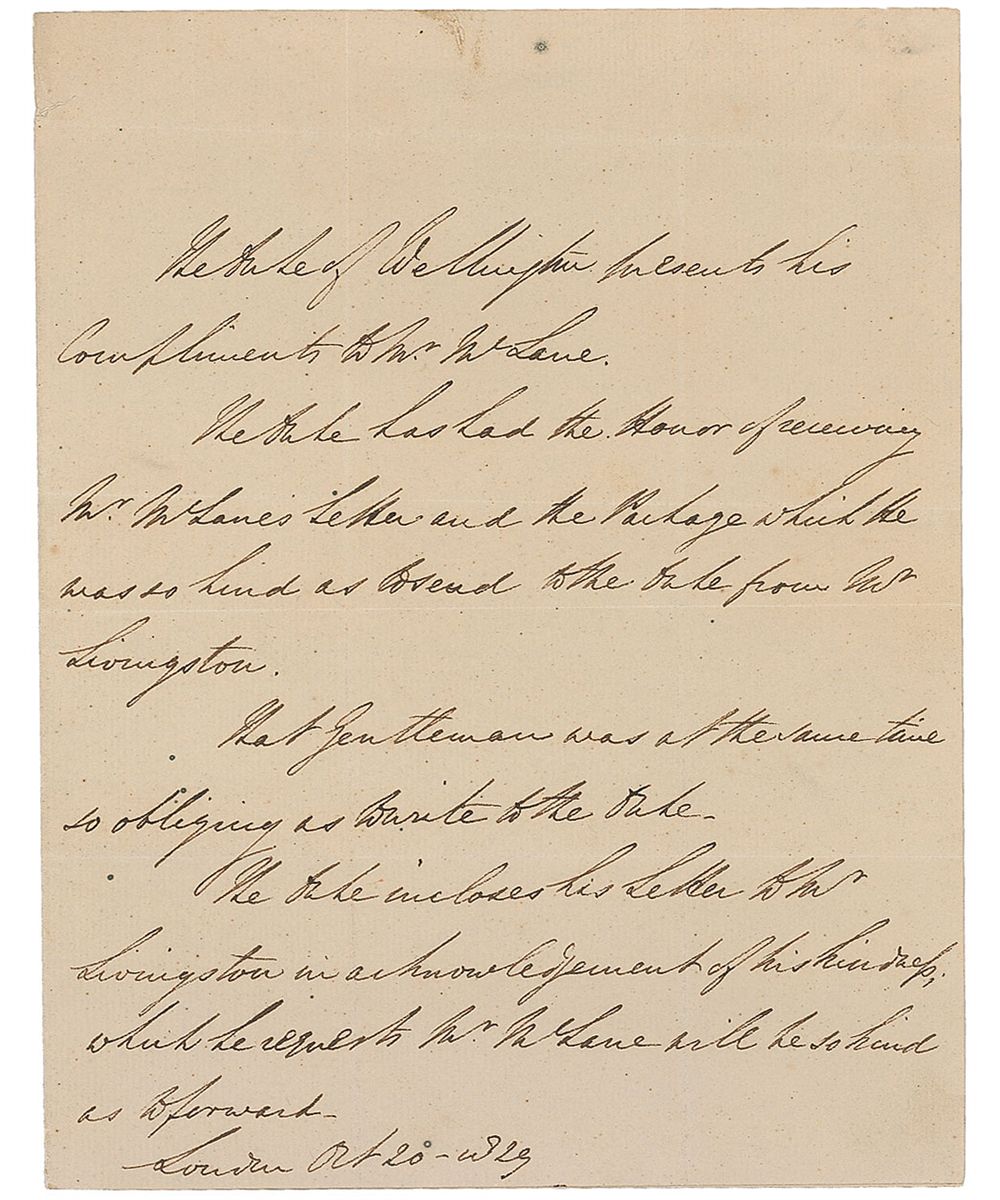 The Duke of Wellington presents his
Compliments to Mr. McLane.
The Duke has had the Honor of receiving
Mr. McLane's Letter and the Package which He
was so kind as to send to the Duke from Mr
Livingston.
That Gentleman was at the same time
so obliging as to write to the Duke -
The Duke incloses his Letter to Mr
Livingston in acknowledgement of his kindness;
which he requests Mr. McLane will be so kind
as to forward -
London Oct 20 - 1829